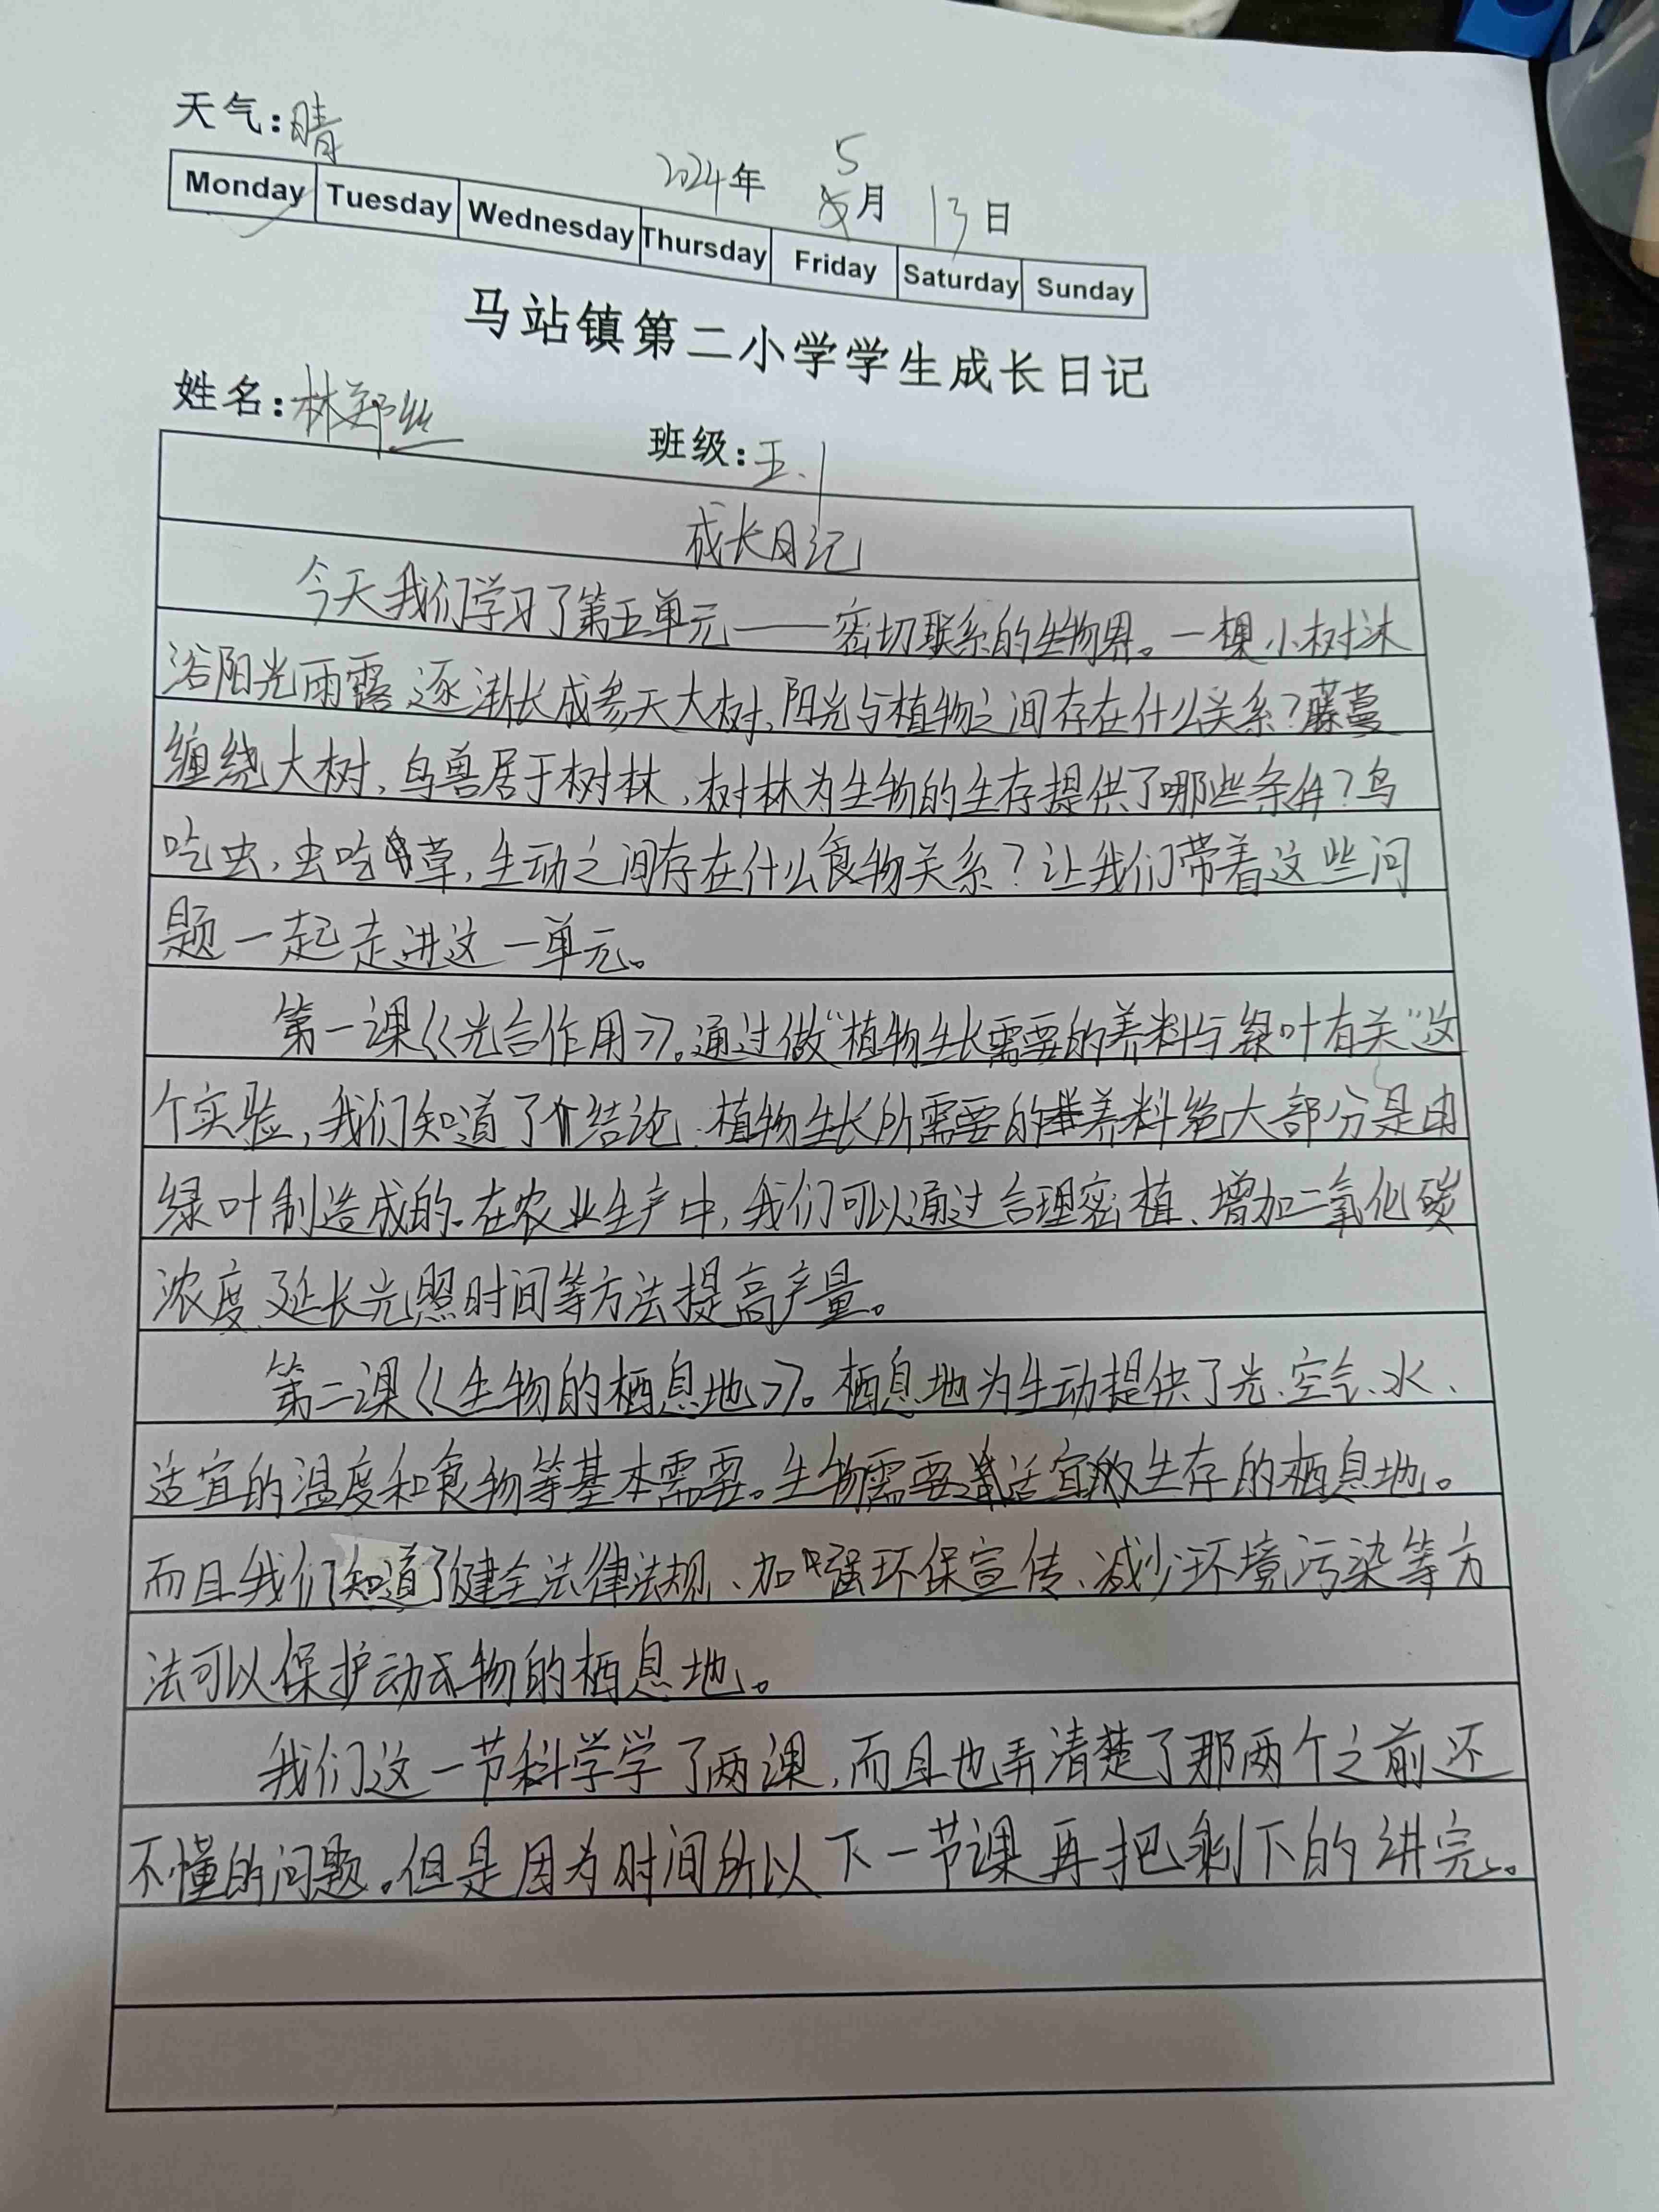 天气：晴
2024年 5月 13日
Monday Tuesday Wednesday Thursday Friday Saturday Sunday
马站镇第二小学学生成长日记
姓名：林郑丝 班级：五.1
成长日记
今天我们学习了第五单元——密切联系的生物界。一棵小树沐
浴阳光雨露、逐渐长成参天大树，阳光与植物之间存在什么关系？藤蔓
缠绕大树，鸟兽居于树林，树林为生物的生存提供了哪些条件？鸟
吃虫，虫吃草，生动之间存在什么食物关系？让我们带着这些问
题一起走进这一单元。
第一课《光合作用》。通过做“植物生长需要的养料与绿叶有关”这
个实验，我们知道了结论：植物生长所需要的养料绝大部分是由
绿叶制造成的。在农业生产中，我们可以通过合理密植、增加二氧化碳
浓度、延长光照时间等方法提高产量。
第二课《生物的栖息地》。栖息地为生动提供了光、空气、水、
适宜的温度和食物等基本需要。生物需要适宜生存的栖息地。
而且我们知道了健全法律法规、加强环保宣传、减少环境污染等方
法可以保护动物的栖息地。
我们这一节科学学了两课，而且也弄清楚了那两个之前还
不懂的问题。但是因为时间所以下一节课再把剩下的讲完。